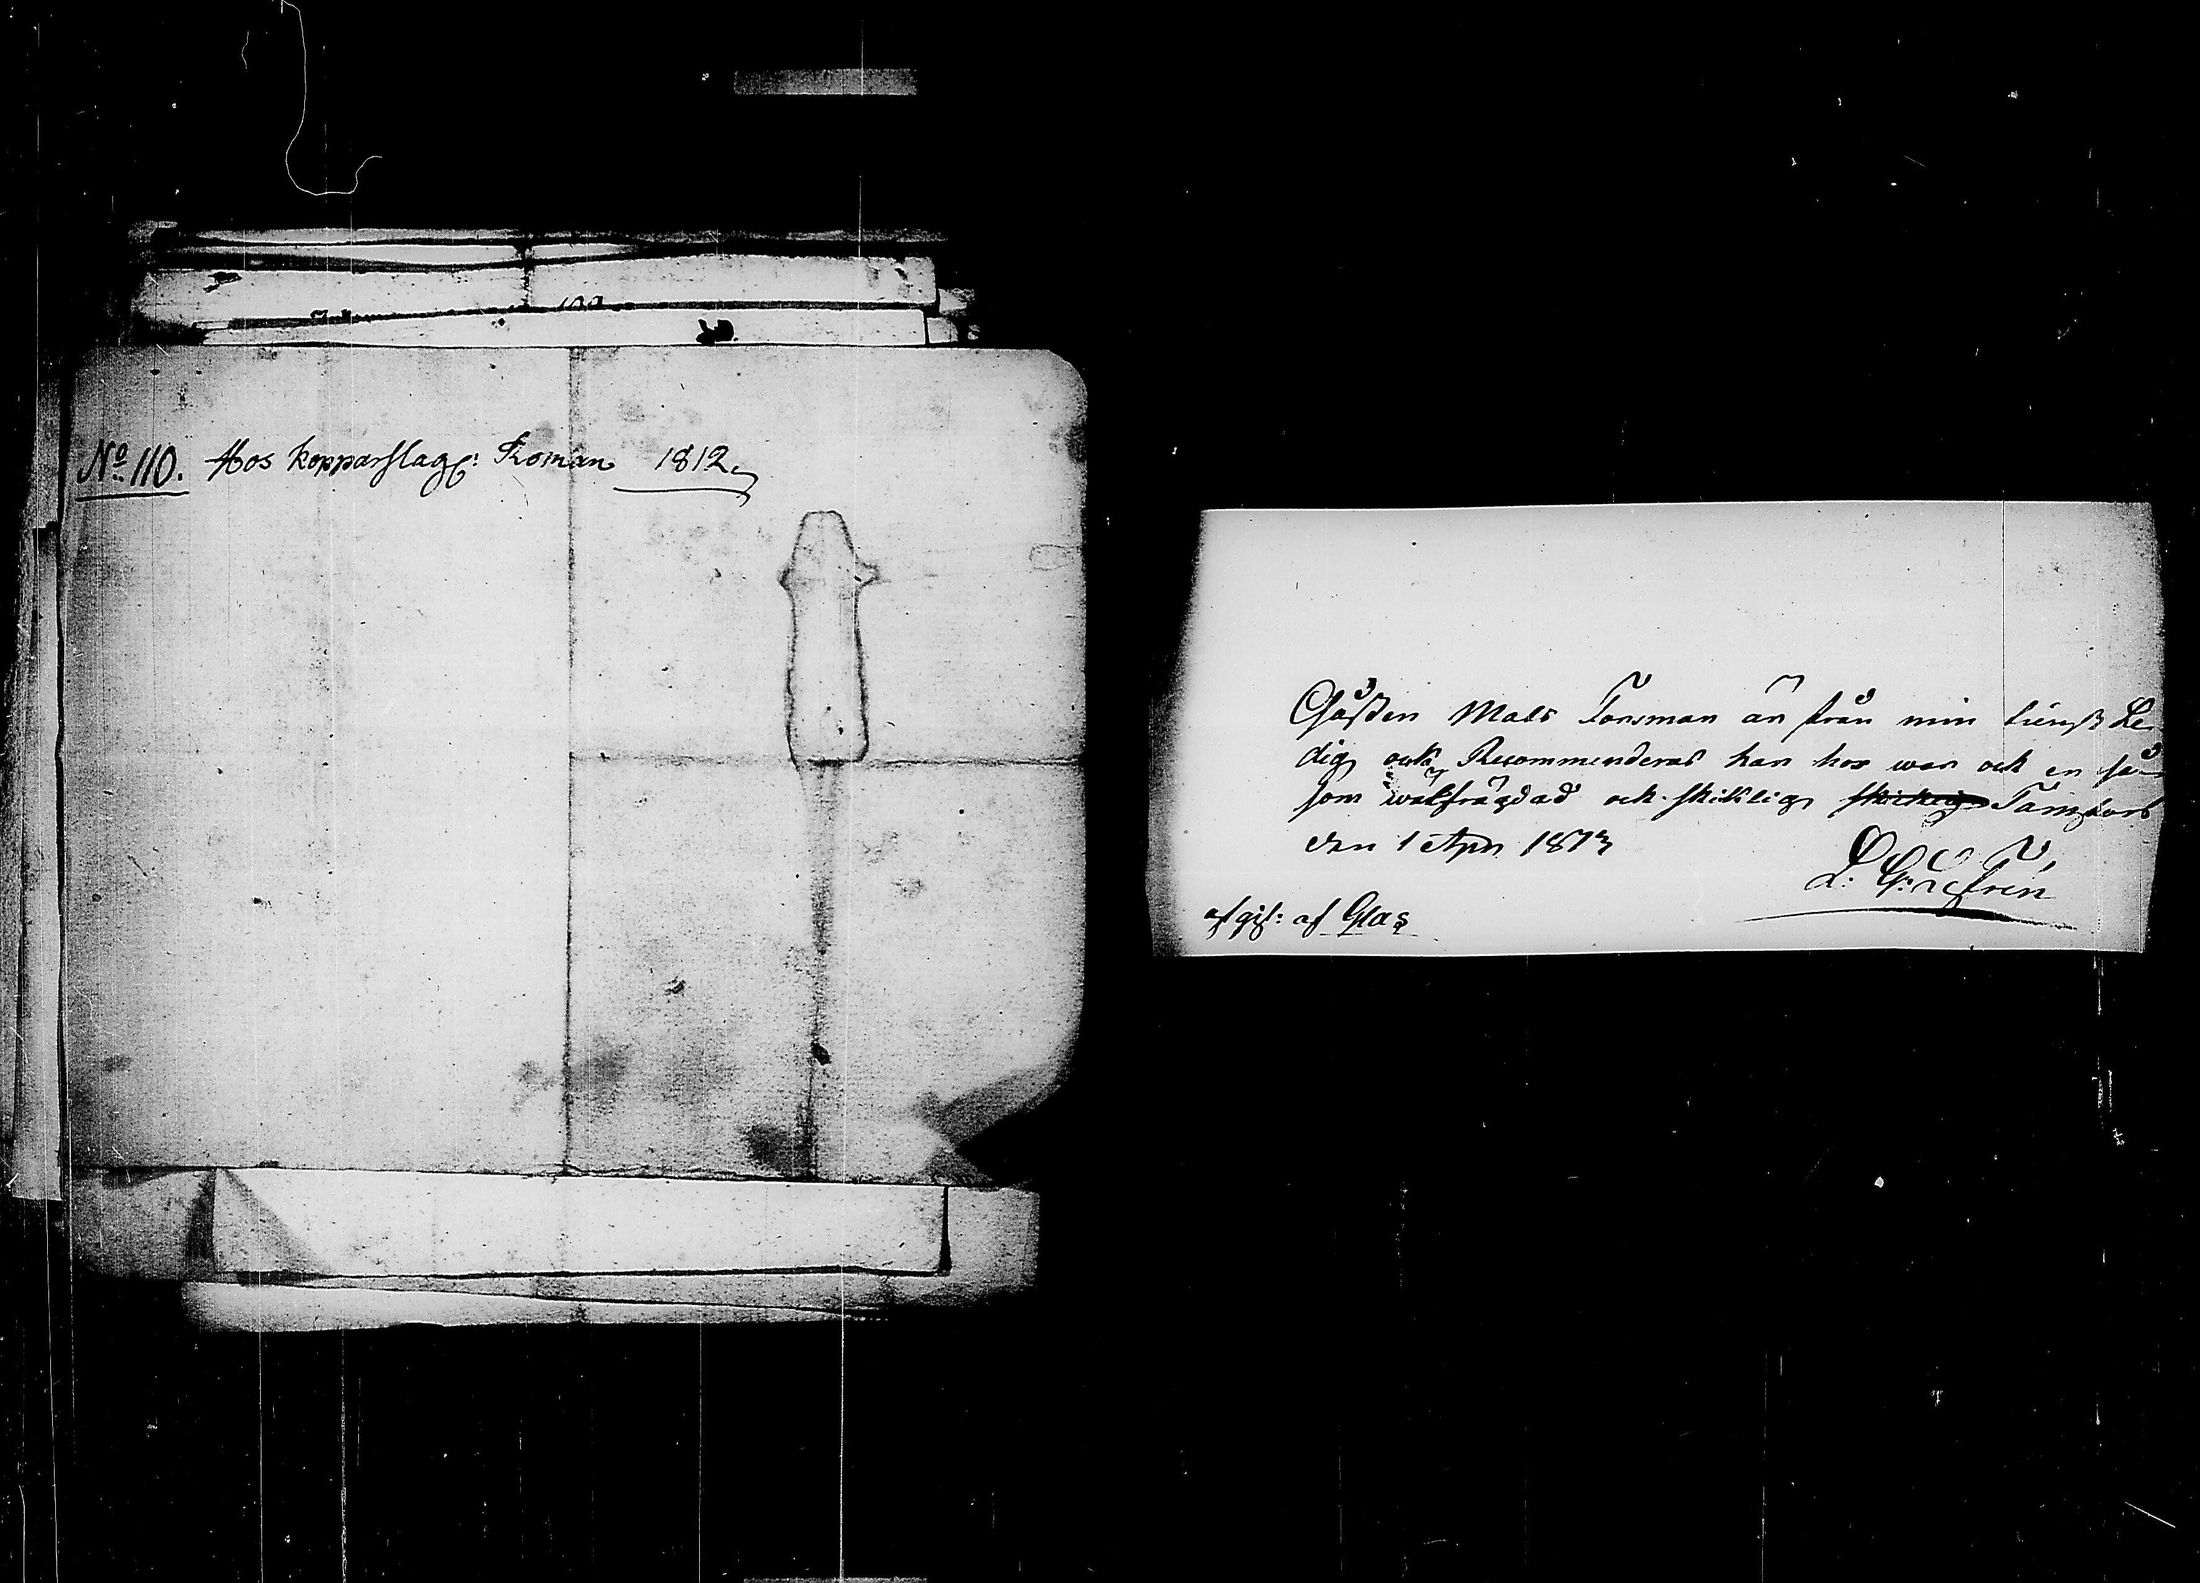 No 110. Hos kopparslag: Roman 1812
Gåssen Mats Forsman är från min tienst Le
dig och Recommenderas han hos war och en så
som wälfrägdad och skiklig Tamfors
den 1 Apr 1813
afgif: af Glas